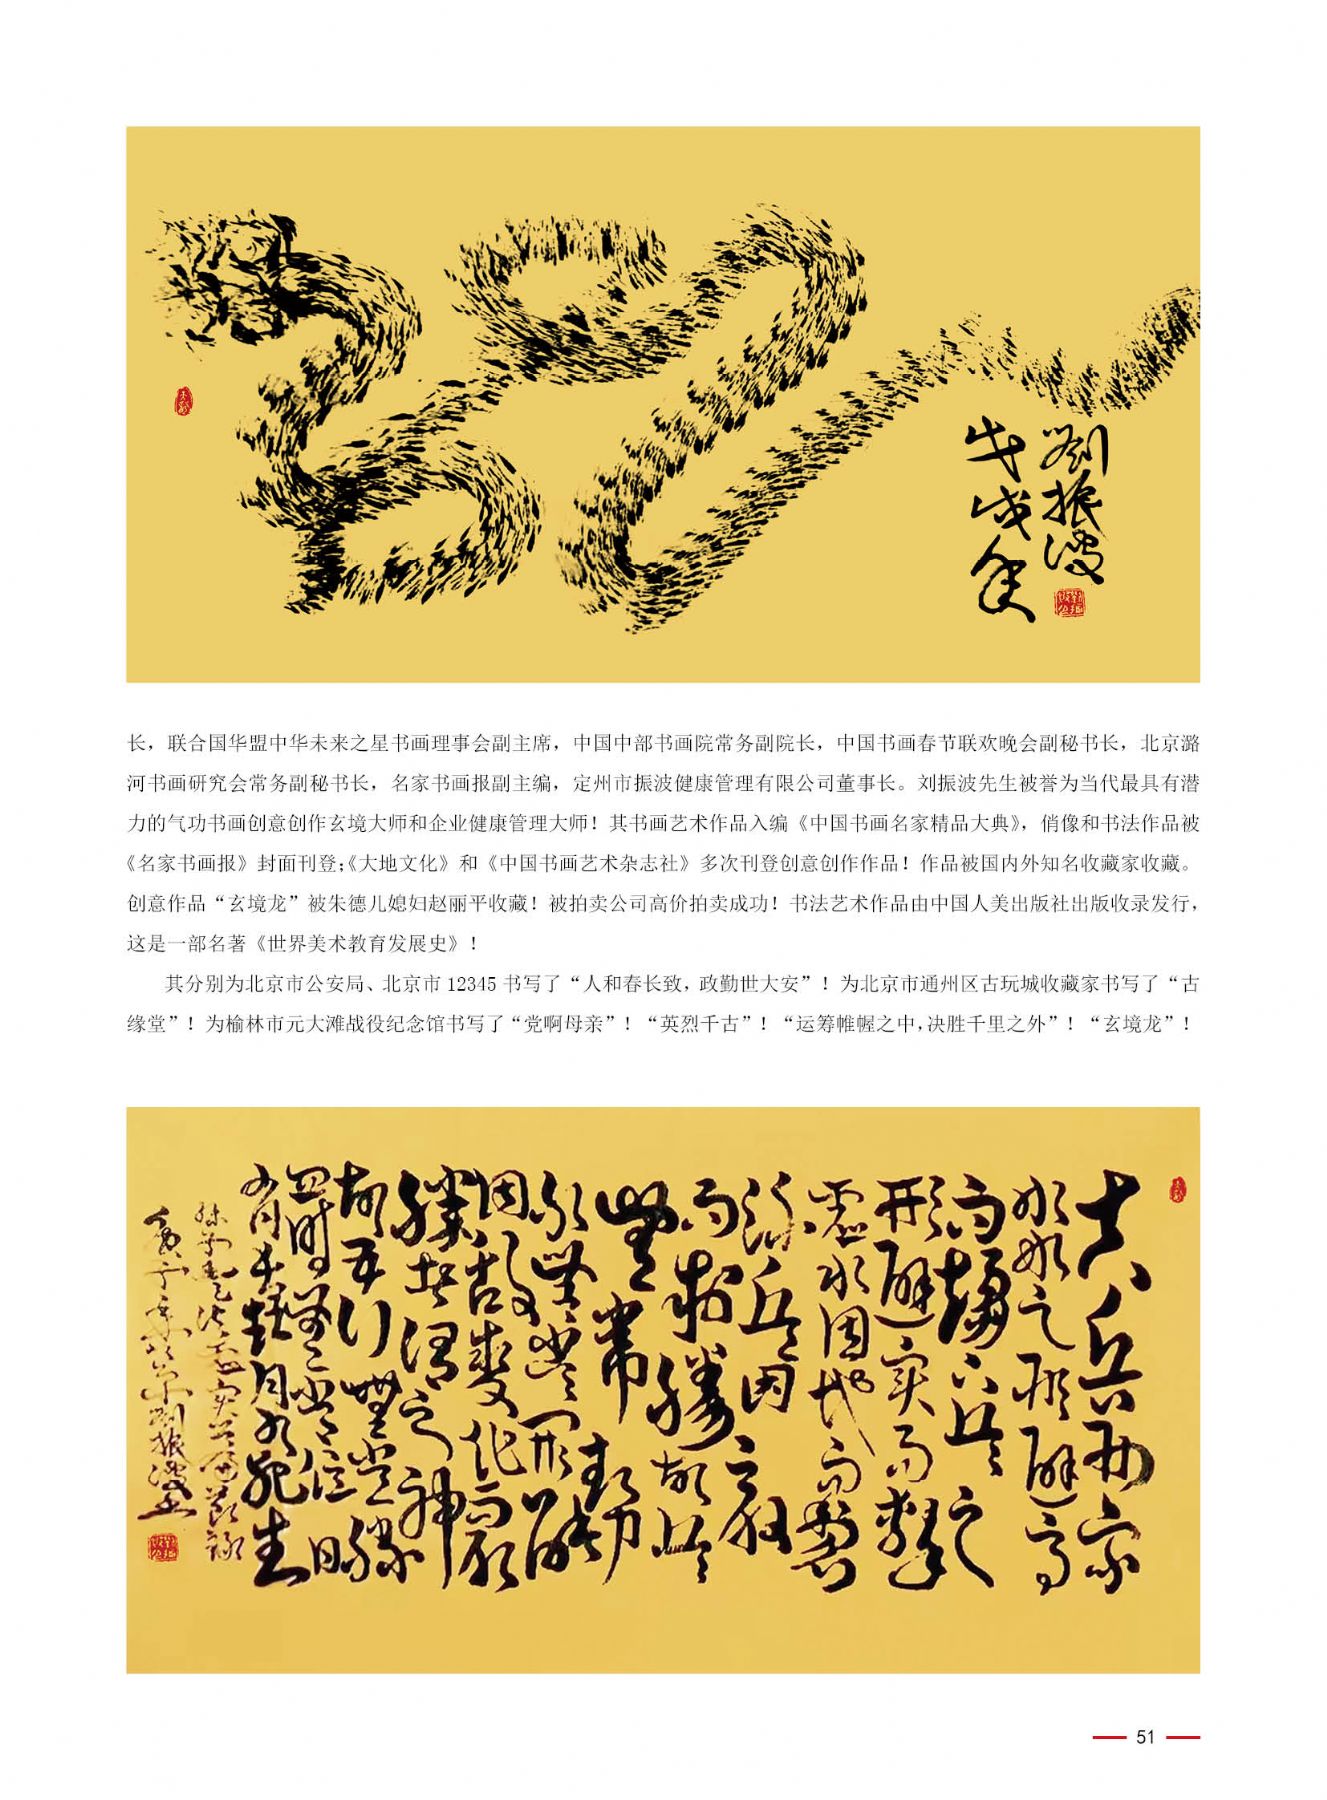 劉振波
戊戌年
长，联合国华盟中华未来之星书画理事会副主席，中国中部书画院常务副院长，中国书画春节联欢晚会副秘书长，北京潞
河书画研究会常务副秘书长，名家书画报副主编，定州市振波健康管理有限公司董事长。刘振波先生被誉为当代最具有潜
力的气功书画创意创作玄境大师和企业健康管理大师！其书画艺术作品入编《中国书画名家精品大典》，俏像和书法作品被
《名家书画报》封面刊登；《大地文化》和《中国书画艺术杂志社》多次刊登创意创作作品！作品被国内外知名收藏家收藏。
创意作品“玄境龙”被朱德儿媳妇赵丽平收藏！被拍卖公司高价拍卖成功！书法艺术作品由中国人美出版社出版收录发行，
这是一部名著《世界美术教育发展史》！
其分别为北京市公安局、北京市 12345 书写了“人和春长致，政勤世大安”！为北京市通州区古玩城收藏家书写了“古
缘堂”！为榆林市元大滩战役纪念馆书写了“党啊母亲”！“英烈千古”！“运筹帷幄之中，决胜千里之外”！“玄境龙”！
夫兵形象
水水之形避高
而趨下兵之
形避實而擊
虛水因地而制
流兵因敵
而制勝故兵
無常勢
水無常形能
因敵變化而取
勝者謂之神
故五行無常勝
四時無常位日
有短長月有死生
51